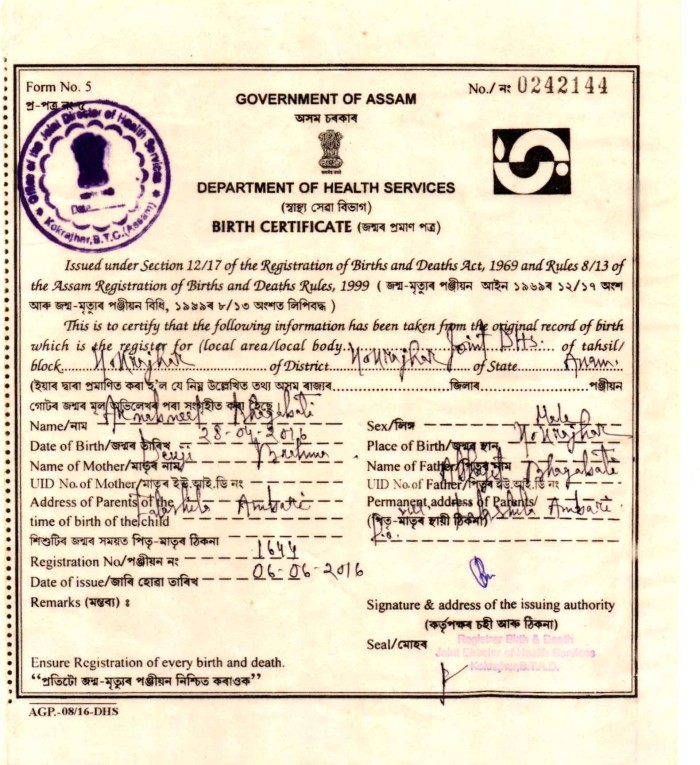 Form No. 5
প্ৰ-পত্ৰ নং ৫
No./ নং 0242144
GOVERNMENT OF ASSAM
অসম চৰকাৰ
Office of the Joint Director of Health Services
Kokrajhar, B.T.C. (Assam)
DEPARTMENT OF HEALTH SERVICES
(স্বাস্থ্য সেৱা বিভাগ)
BIRTH CERTIFICATE (জন্মৰ প্ৰমাণ পত্ৰ)
Issued under Section 12/17 of the Registration of Births and Deaths Act, 1969 and Rules 8/13 of
the Assam Registration of Births and Deaths Rules, 1999 ( জন্ম-মৃত্যুৰ পঞ্জীয়ন আইন ১৯৬৯ৰ ১২/১৭ অংশ
আৰু জন্ম-মৃত্যুৰ পঞ্জীয়ন বিধি, ১৯৯৯ৰ ৮/১৩ অংশত লিপিবদ্ধ )
This is to certify that the following information has been taken from the original record of birth
which is the register for (local area/local body.... Joint DHS... of tahsil/
block.... Kokrajhar ....of District.... Kokrajhar ....of State.... Assam.
(ইয়াৰ দ্বাৰা প্ৰমাণিত কৰা হ'ল যে নিম্ন উল্লেখিত তথ্য অসম ৰাজ্যৰ........জিলাৰ........পঞ্জীয়ন
গোটৰ জন্মৰ মূল অভিলেখৰ পৰা সংগৃহীত কৰা হৈছে)
Name/নাম Bhagabati
Sex/লিঙ্গ Male
Date of Birth/জন্মৰ তাৰিখ 28-04-2016
Place of Birth/জন্মৰ স্থান Kokrajhar
Name of Mother/মাতৃৰ নাম Brahma
Name of Father/পিতৃৰ নাম Bhagabati
UID No. of Mother/মাতৃৰ ইউ.আই.ডি নং
UID No. of Father/পিতৃৰ ইউ.আই.ডি নং
Address of Parents of the Ambari
time of birth of the child
Permanent address of Parents/ Ambari
(পিতৃ-মাতৃৰ স্থায়ী ঠিকনা)
শিশুটিৰ জন্মৰ সময়ত পিতৃ-মাতৃৰ ঠিকনা
Registration No/পঞ্জীয়ন নং 1644
Date of issue/জাৰি হোৱা তাৰিখ 06-06-2016
Remarks (মন্তব্য) :
Signature & address of the issuing authority
(কৰ্তৃপক্ষৰ চহী আৰু ঠিকনা)
Seal/মোহৰ
Registrar Birth & Death
Joint Director of Health Services
Kokrajhar, B.T.A.D.
Ensure Registration of every birth and death.
“প্ৰতিটো জন্ম-মৃত্যুৰ পঞ্জীয়ন নিশ্চিত কৰাওক”
AGP.-08/16-DHS